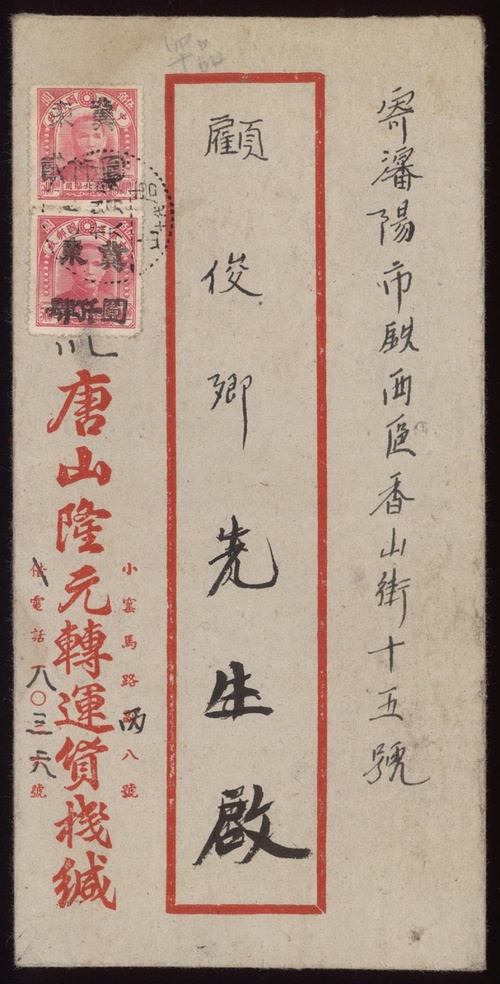 寄瀋陽市鉄西區香山街十五號
顧俊卿先生啟
小窰馬路 丙八號
電話 八〇三六號
唐山隆元轉運貨機緘
冀東
貳仟圓
冀東
肆仟圓